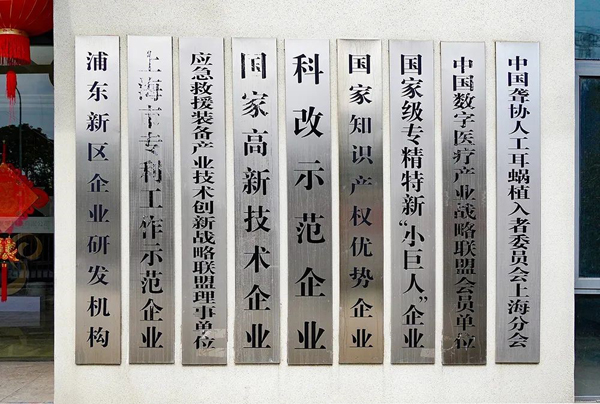 浦东新区企业研发机构
上海市专利工作示范企业
应急救援装备产业技术创新战略联盟理事单位
国家高新技术企业
科改示范企业
国家知识产权优势企业
国家级专精特新“小巨人”企业
中国数字医疗产业战略联盟会员单位
中国聋协人工耳蜗植入者委员会上海分会